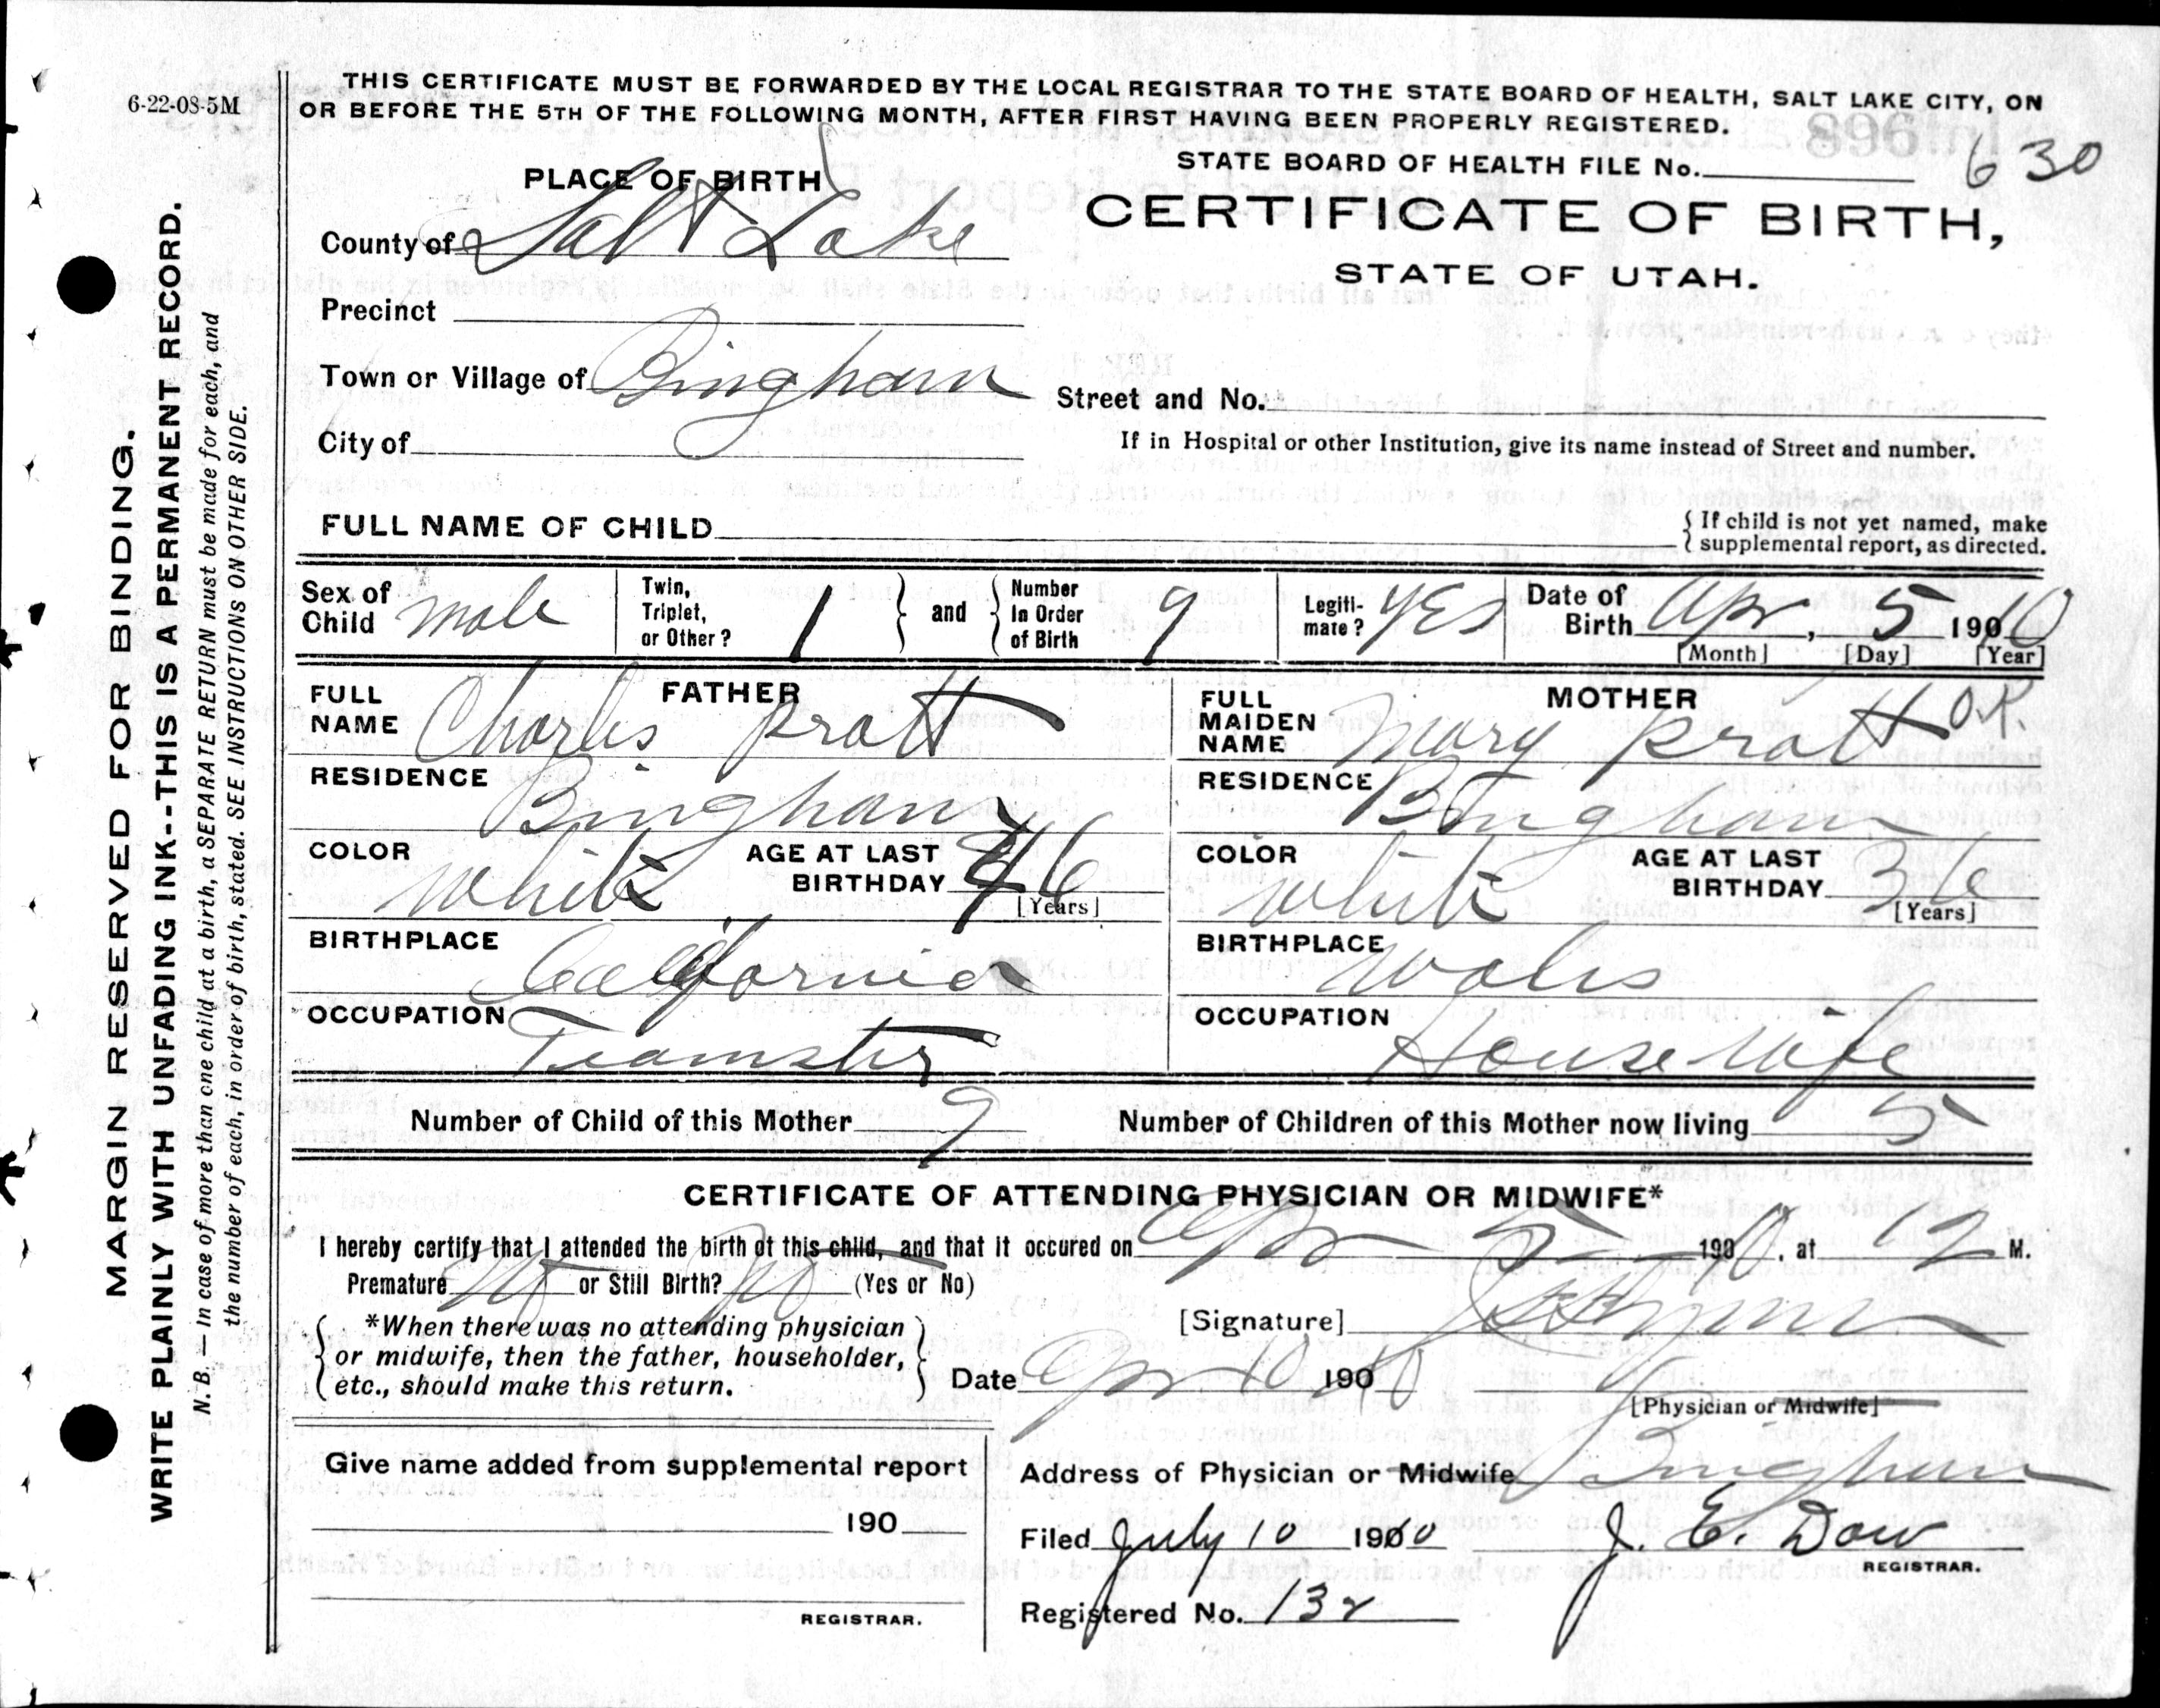 6-22-08-5M
THIS CERTIFICATE MUST BE FORWARDED BY THE LOCAL REGISTRAR TO THE STATE BOARD OF HEALTH, SALT LAKE CITY, ON
OR BEFORE THE 5TH OF THE FOLLOWING MONTH, AFTER FIRST HAVING BEEN PROPERLY REGISTERED.
STATE BOARD OF HEALTH FILE No. 630
PLACE OF BIRTH
CERTIFICATE OF BIRTH,
STATE OF UTAH.
County of Salt Lake
Precinct
Town or Village of Bingham
Street and No.
City of
If in Hospital or other Institution, give its name instead of Street and number.
FULL NAME OF CHILD
{ If child is not yet named, make
supplemental report, as directed.
Sex of Child male
Twin, Triplet, or Other? 1 } and { Number In Order of Birth 9
Legitimate? Yes
Date of Birth Apr, 5 1910
[Month] [Day] [Year]
FATHER
FULL NAME Charles Pratt
RESIDENCE Bingham
COLOR White AGE AT LAST BIRTHDAY 46 [Years]
BIRTHPLACE California
OCCUPATION Teamster
MOTHER
FULL MAIDEN NAME Mary Pratt O.K.
RESIDENCE Bingham
COLOR White AGE AT LAST BIRTHDAY 36 [Years]
BIRTHPLACE Wales
OCCUPATION Housewife
Number of Child of this Mother 9 Number of Children of this Mother now living 5
CERTIFICATE OF ATTENDING PHYSICIAN OR MIDWIFE*
I hereby certify that I attended the birth of this child, and that it occured on Apr 5 1910, at 12 M.
Premature No or Still Birth? No (Yes or No)
*When there was no attending physician
or midwife, then the father, householder,
etc., should make this return.
[Signature]
Date Apr 10 1910
[Physician or Midwife]
Give name added from supplemental report
190
REGISTRAR.
Address of Physician or Midwife Bingham
Filed July 10 1910 J. E. Dow
REGISTRAR.
Registered No. 132
MARGIN RESERVED FOR BINDING.
WRITE PLAINLY WITH UNFADING INK--THIS IS A PERMANENT RECORD.
N. B. — In case of more than one child at a birth, a SEPARATE RETURN must be made for each, and
the number of each, in order of birth, stated. SEE INSTRUCTIONS ON OTHER SIDE.